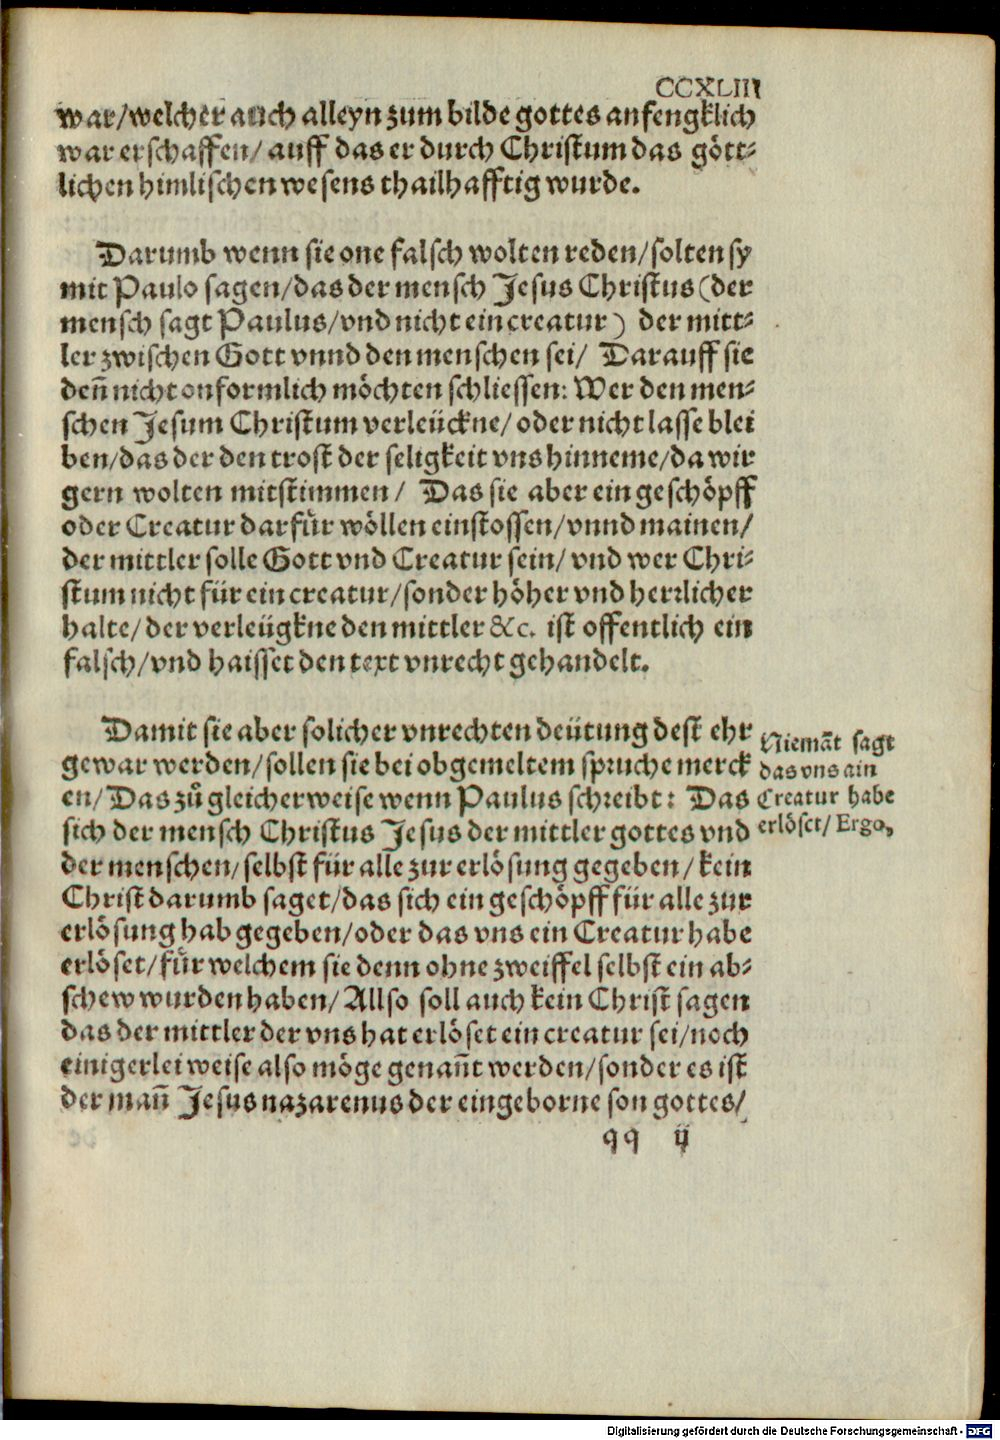 CCXLIII
war/welcher auch alleyn zum bilde gottes anfengklich
war erschaffen/ auff das er durch Christum das gött-
lichen himlischen wesens thailhafftig wurde.
Darumb wenn sie one falsch wolten reden/solten sy
mit Paulo sagen/das der mensch Jesus Christus (der
mensch sagt Paulus/vnd nicht ein creatur) der mitt-
ler zwischen Gott vnnd den menschen sei/ Darauff sie
deñ nicht onformlich möchten schliessen: Wer den men-
schen Jesum Christum verleückne/ oder nicht lasse blei
ben/das der den trost der seligkeit vns hinneme/da wir
gern wolten mitstimmen/ Das sie aber ein geschöpff
oder Creatur darfür wöllen einstossen/vnnd mainen/
der mittler solle Gott vnd Creatur sein/ vnd wer Chri-
stum nicht für ein creatur/sonder höher vnd herrlicher
halte/ der verleügkne den mittler &c. ist offentlich ein
falsch/vnd haisset den text vnrecht gehandelt.
Damit sie aber solicher vnrechten deütung dest ehr
gewar werden/sollen sie bei obgemeltem spruche merck
en/ Das zů gleicher weise wenn Paulus schreibt: Das
sich der mensch Christus Jesus der mittler gottes vnd
der menschen/selbst für alle zur erlösung gegeben/ kein
Christ darumb saget/das sich ein geschöpff für alle zur
erlösung hab gegeben/oder das vns ein Creatur habe
erlöset/für welchem sie denn ohne zweiffel selbst ein ab-
schew wurden haben/ Allso soll auch kein Christ sagen
das der mittler der vns hat erlöset ein creatur sei/noch
einigerlei weise also möge genañt werden/sonder es ist
der mañ Jesus nazarenus der eingeborne son gottes/
Niemãt sagt
das vns ain
Creatur habe
erlöset/ Ergo,
qq ij
Digitalisierung gefördert durch die Deutsche Forschungsgemeinschaft - DFG